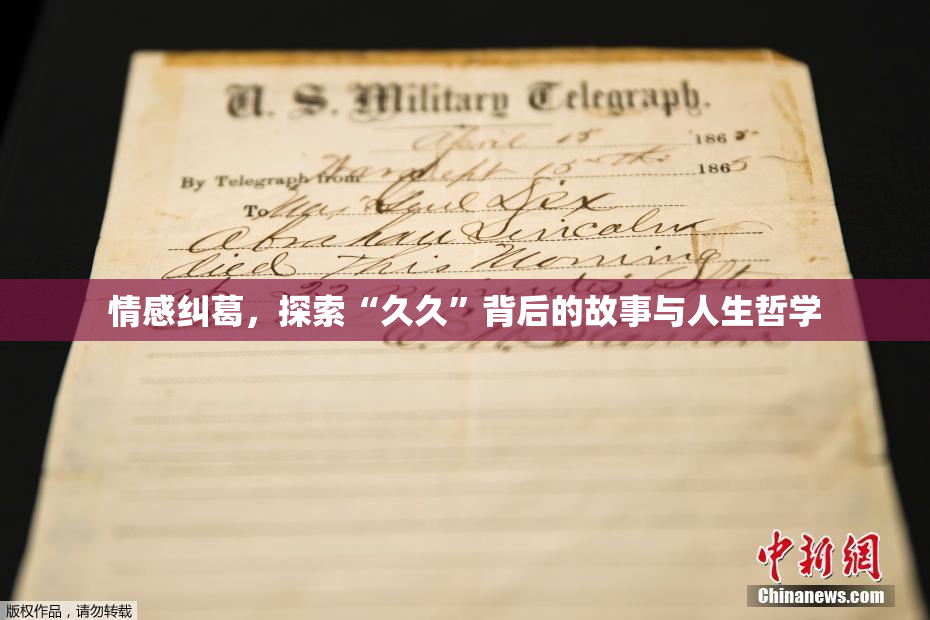 U. S. Military Telegraph.
April 15 1865
By Telegraph from War Dept 15th 1865
To Maj Genl Dix
Abraham Lincoln
died This Morning
at 22 minutes after
情感纠葛，探索“久久”背后的故事与人生哲学
E. M. Stanton
中新网
Chinanews.com
版权作品，请勿转载